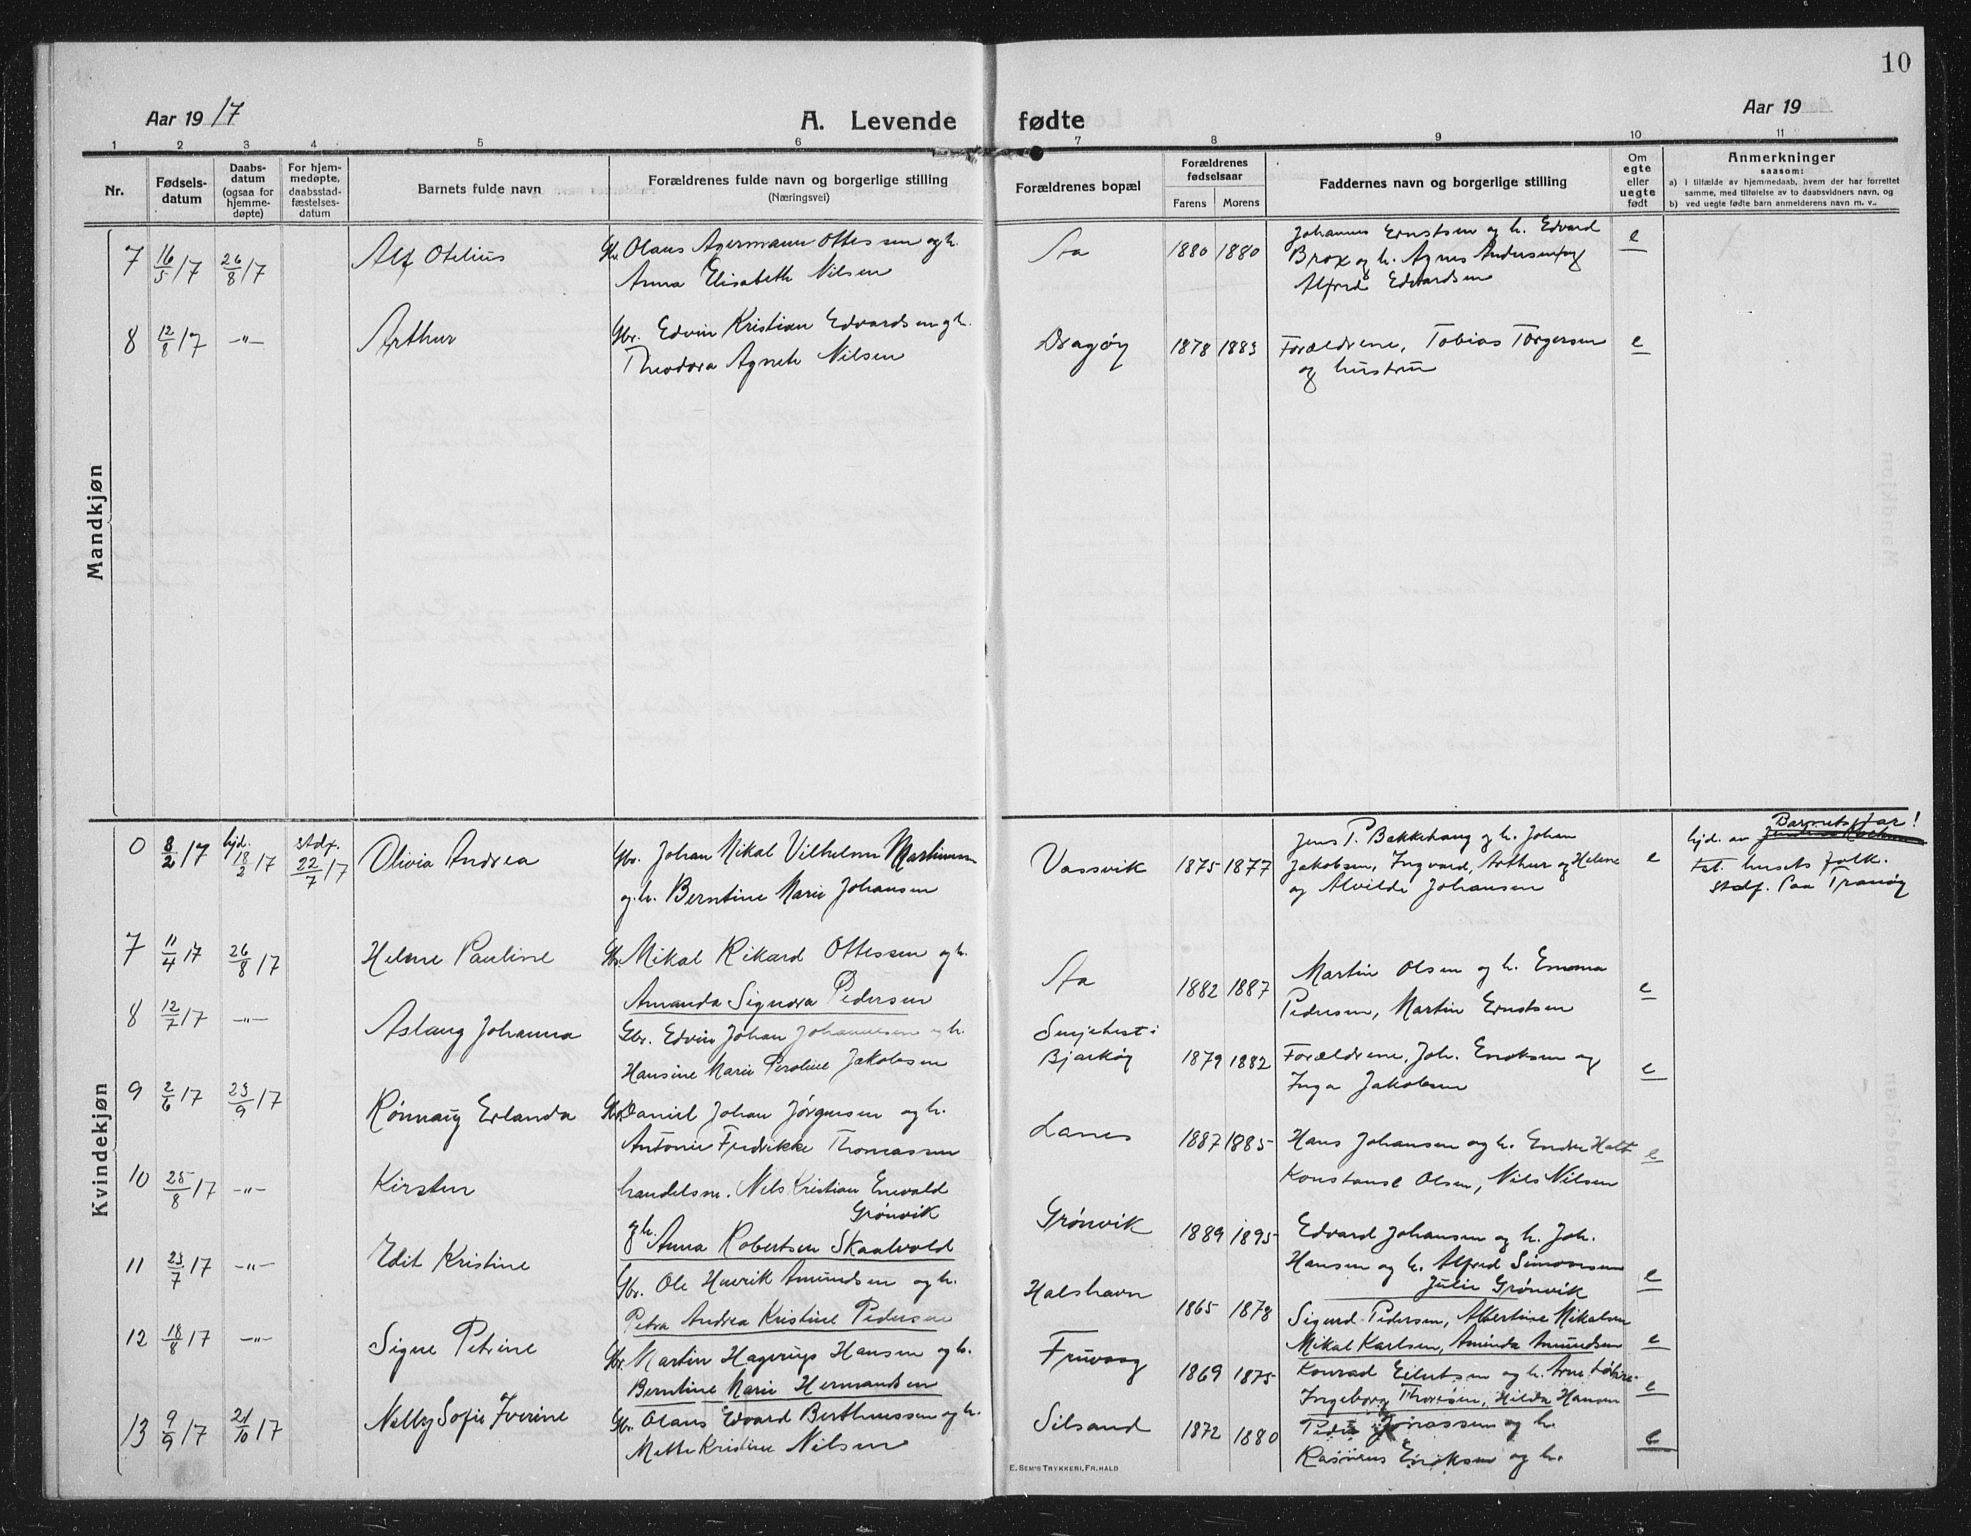 10
Aar 19 17
A. Levende fødte
Aar 19
1 2 3 4 5 6 7 8 9 10 11
Nr.
Fødsels-
datum
Daabs-
datum
(ogsaa for
hjemme-
døpte)
For hjem-
medøpte,
daabsstad-
fæstelses-
datum
Barnets fulde navn
Forældrenes fulde navn og borgerlige stilling
(Næringsvei)
Forældrenes bopæl
Forældrenes
fødselsaar
Farens Morens
Faddernes navn og borgerlige stilling
Om
egte
eller
uegte
født
Anmerkninger
saasom:
a) I tilfælde av hjemmedaab, hvem der har forrettet
samme, med tilføielse av to daabsvidners navn, og
b) ved uegte fødte barn anmelderens navn m. v.
Mandkjøn
7 16/5 17 26/8 17 Alf Otelius
Gbr. Olaus Agermann Ottessen og h.
Anna Elisabeth Nilsen
Aa 1880 1880
Johannes Ernstsen og h. Edvard
Brox og h. Agnes Andersen og
Alfred Edvardsen
e
8 12/8 17 -"- Arthur
Gbr. Edvin Kristian Edvardsen og h.
Theodora Agnete Nilsen
Dragøy 1878 1883
Forældrene, Tobias Torgersen
og hustru
e
Kvindekjøn
0 8/2 17 hjd. 18/2 17 stdf. 22/7 17 Olivia Andrea
Gbr. Johan Mikal Vilhelm Martinussen
og h. Berntine Marie Johansen
Vassvik 1875 1877
Jens P. Bakkehaug og h. Johan
Jakobsen, Ingvard, Arthur og Helene
og Alvilde Johansen
e
Barnets far!
hjd. av
tst. husets folk.
stdf. paa Tranøy
7 11/4 17 26/8 17 Helene Pauline
Gbr. Mikal Rikard Ottessen og h.
Amanda Signora Pedersen
Aa 1882 1887
Martin Olsen og h. Emma
Pedersen, Martin Ernstsen
e
8 12/7 17 -"- Aslaug Johanna
Gbr. Edvin Johan Johannesen og h.
Hansine Marie Peroline Jakobsen
Bjarkøy 1879 1882
Forældrene, Joh. Enoksen og
Inga Jakobsen
e
9 2/6 17 23/9 17 Rønnaug Erlanda
Gbr. Daniel Johan Jørgensen og h.
Antonie Fredrikke Thomassen
Lanes 1887 1885
Hans Johansen og h. Endre Holt
Konstanse Olsen, Nils Nilsen
e
10 25/8 17 -"- Kirsten
handelsm. Nils Kristian Enevald
Grønvik
og h. Anna Robertsen Skaalvold
Grønvik 1889 1895
Edvard Johansen og h. Joh.
Hansen og h. Alfred Simonsen
Julie Grønvik
e
11 23/7 17 -"- Edit Kristine
Gbr. Ole Henrik Amundsen og h.
Petra Andrea Kristine Pedersen
Halshavn 1865 1878
Sigurd Pedersen, Albertine Mikalsen
Mikal Karlsen, Aminda Amundsen
e
12 18/8 17 -"- Signe Petrine
Gbr. Martin Hagerup Hansen og h.
Berntine Marie Hermandsen
Fruvaag 1869 1875
Konrad Eilertsen og h. Arne
Ingeborg Thoresen, Hilda Hansen
e
13 9/9 17 21/10 17 Nelly Sofie Iverine
Gbr. Olaus Edvard Bertheussen og h.
Mette Kristine Nilsen
Silsand 1872 1880
Peder Jonassen og h.
Rasmus Enoksen og h.
e
E. SEM'S TRYKKERI, FR.HALD